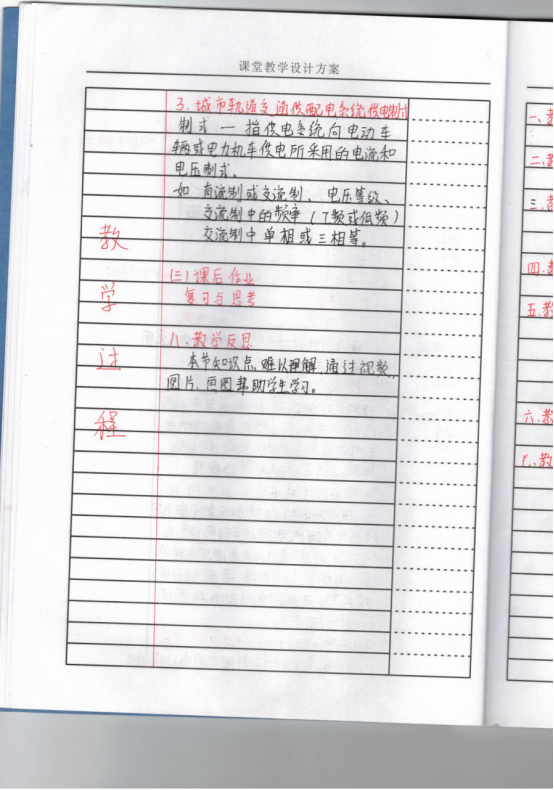 课堂教学设计方案
3、城市轨道交通供配电系统供电制式
制式 — 指供电系统向电动车
辆或电力机车供电所采用的电流和
电压制式。
如 直流制或交流制、电压等级、
交流制中的频率（工频或低频）
交流制中单相或三相等。
(三) 课后作业
复习与思考
八、教学反思
本节知识点难以理解 通过视频、
图片、画图帮助学生学习。
教
学
过
程
一、教
二、教
三、教
四、教
五、教
六、教
七、教